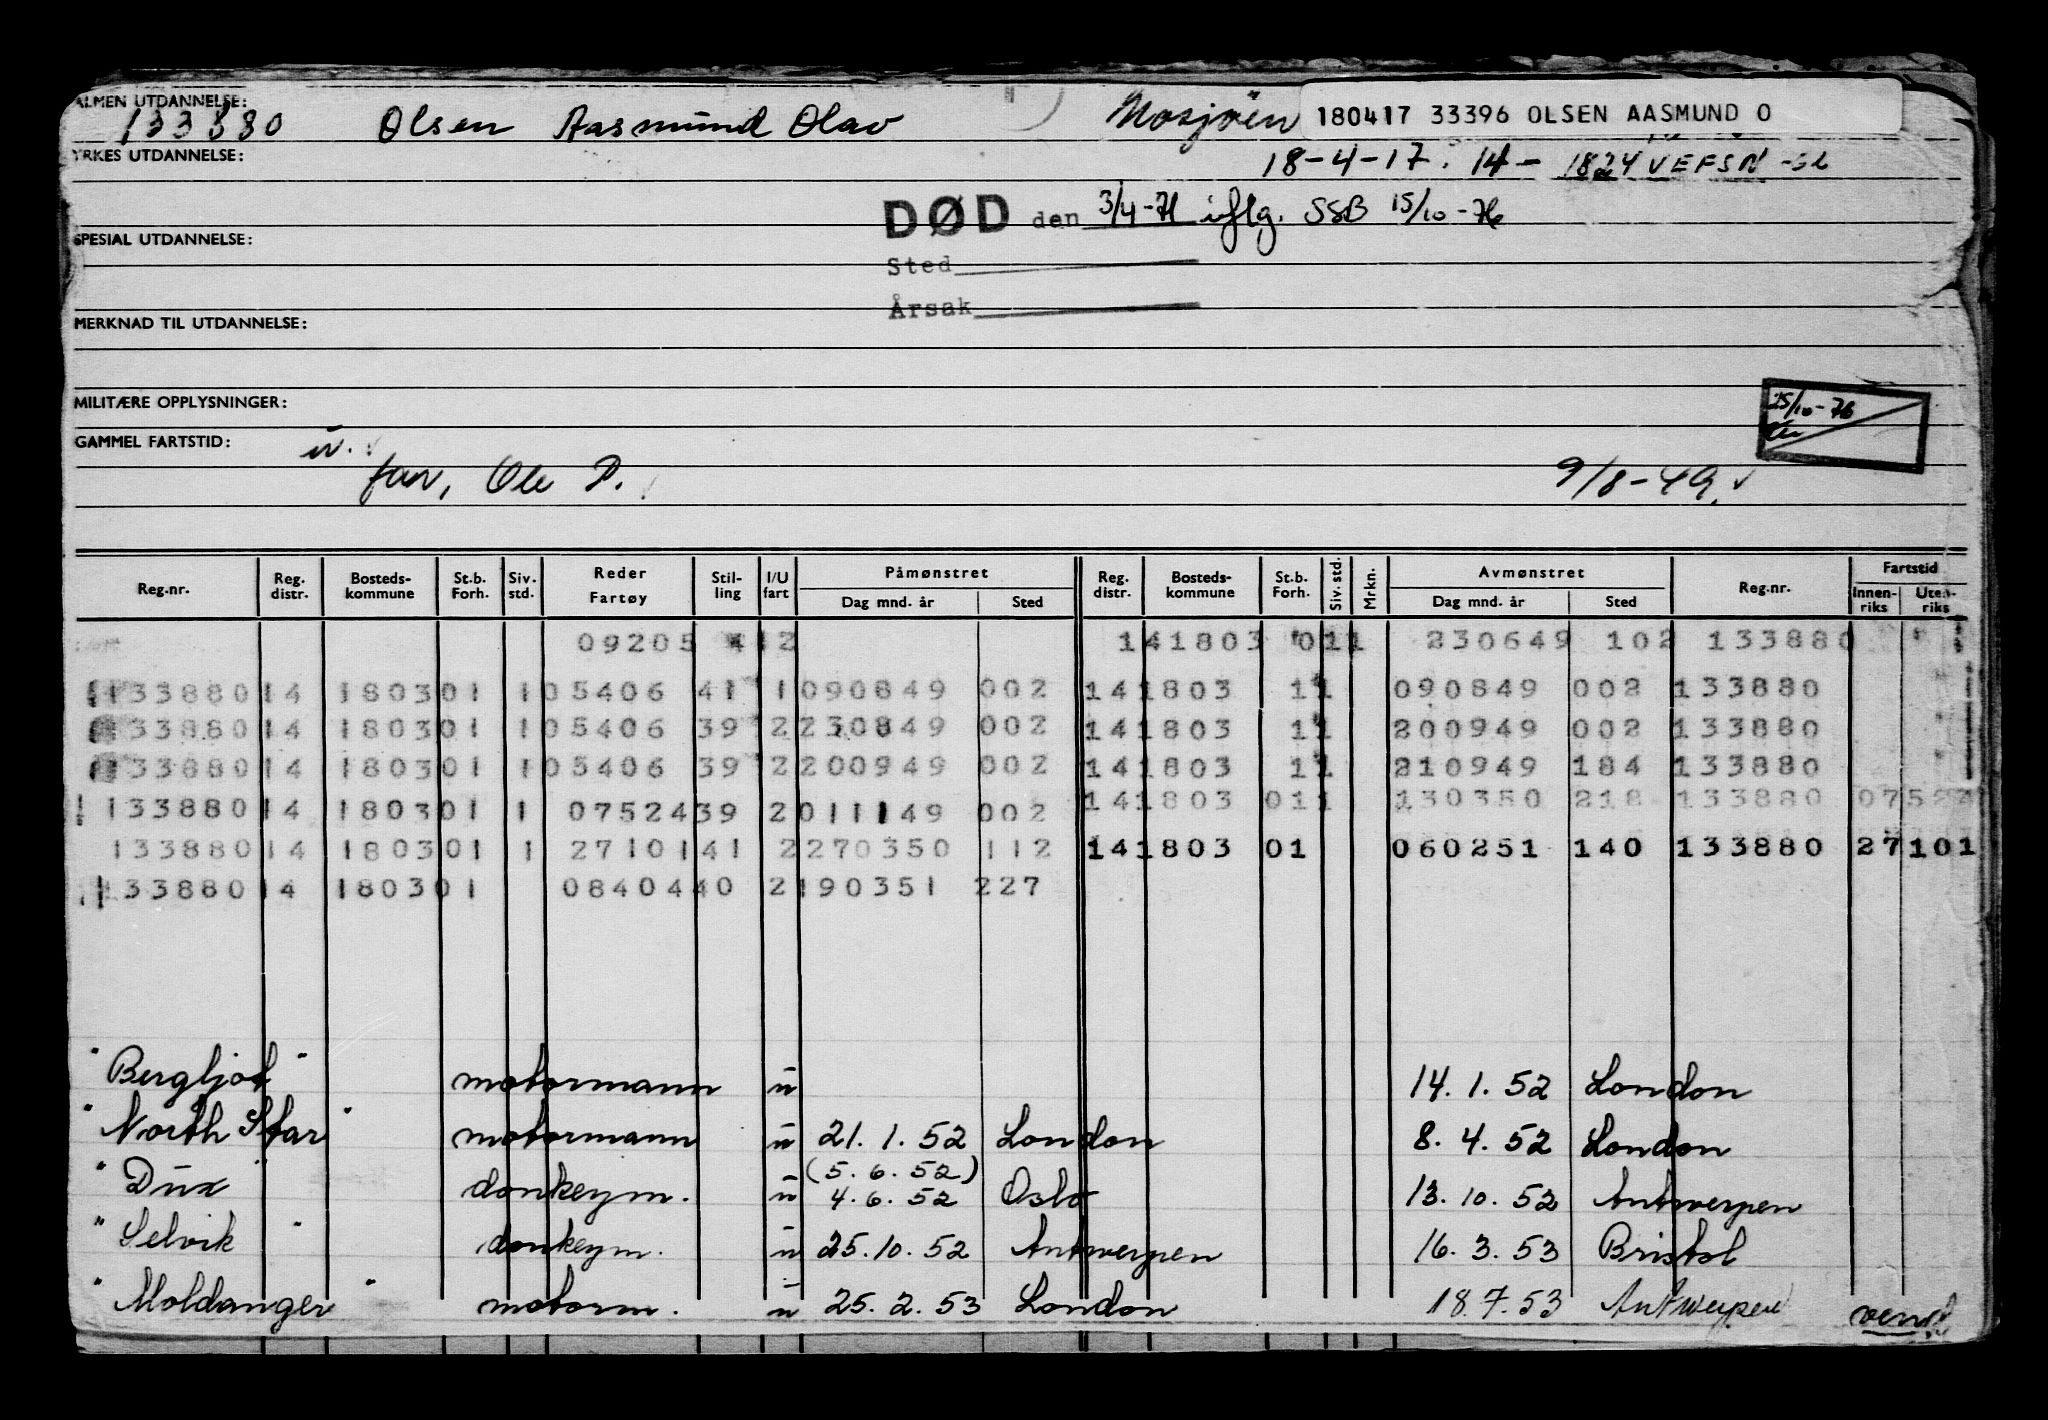 ALMEN UTDANNELSE:
133880 Olsen Aasmund Olav Mosjøen 180417 33396 OLSEN AASMUND O
YRKES UTDANNELSE:
18-4-17. 14 - 1824 VEFSN
DØD den 3/4-71 iflg. SSB 15/10-76
SPESIAL UTDANNELSE:
Sted
Årsak
MERKNAD TIL UTDANNELSE:
MILITÆRE OPPLYSNINGER:
25/10-76
GAMMEL FARTSTID: u.
far, Ole P. 9/8-49.
Reg.nr. Reg. distr. Bosteds-kommune St.b. Forh. Siv. std. Reder Fartøy Stil-ling I/U fart Påmønstret Dag mnd. år Sted Reg. distr. Bosteds-kommune St.b. Forh. Siv. std. Mrkn. Avmønstret Dag mnd. år Sted Reg.nr. Fartstid Innen-riks Uten-riks
09205 412 141803 011 230649 102 133880
133880 14 1803 01 1 05406 41 1 090849 002 14 1803 11 090849 002 133880
133880 14 1803 01 1 05406 39 2 230849 002 14 1803 11 200949 002 133880
133880 14 1803 01 1 05406 39 2 200949 002 14 1803 11 210949 184 133880
133880 14 1803 01 1 07524 39 2 011149 002 14 1803 011 130350 218 133880 07524
133880 14 1803 01 1 27101 41 2 270350 112 14 1803 01 060251 140 133880 27101
133880 14 1803 01 08404 40 2 190351 227
"Bergljot" motormann u 14. 1. 52 London
"North Star" motormann u 21. 1. 52 London 8. 4. 52 London
(5. 6. 52)
"Dux" donkeym. u 4. 6. 52 Oslo 13. 10. 52 Antwerpen
"Selvik" donkeym. u 25. 10. 52 Antwerpen 16. 3. 53 Bristol
"Moldanger" motorm. u 25. 2. 53 London 18. 7. 53 Antwerpen vend!